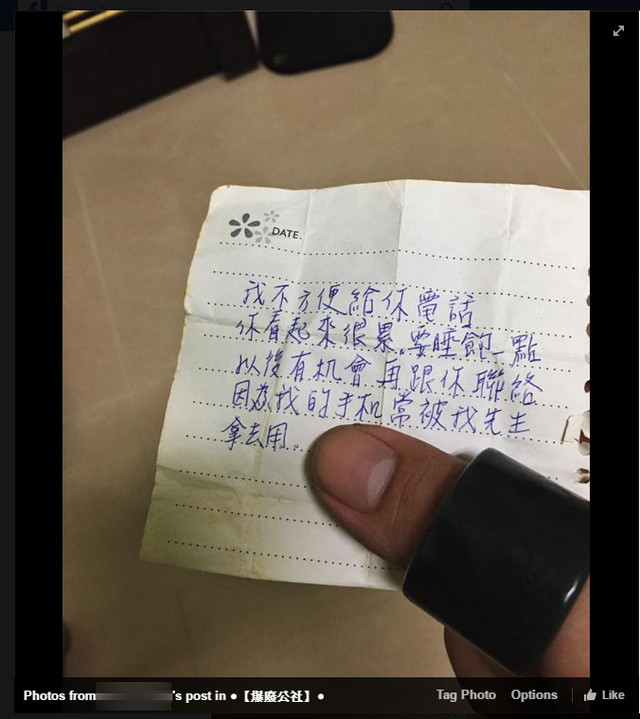 DATE.
我不方便給你電話
你看起來很累。要睡飽一點
以後有机會再跟你聯絡
因為我的手机常被我先生
拿去用。
Photos from 's post in ●【爆廢公社】●
Tag Photo Options Like